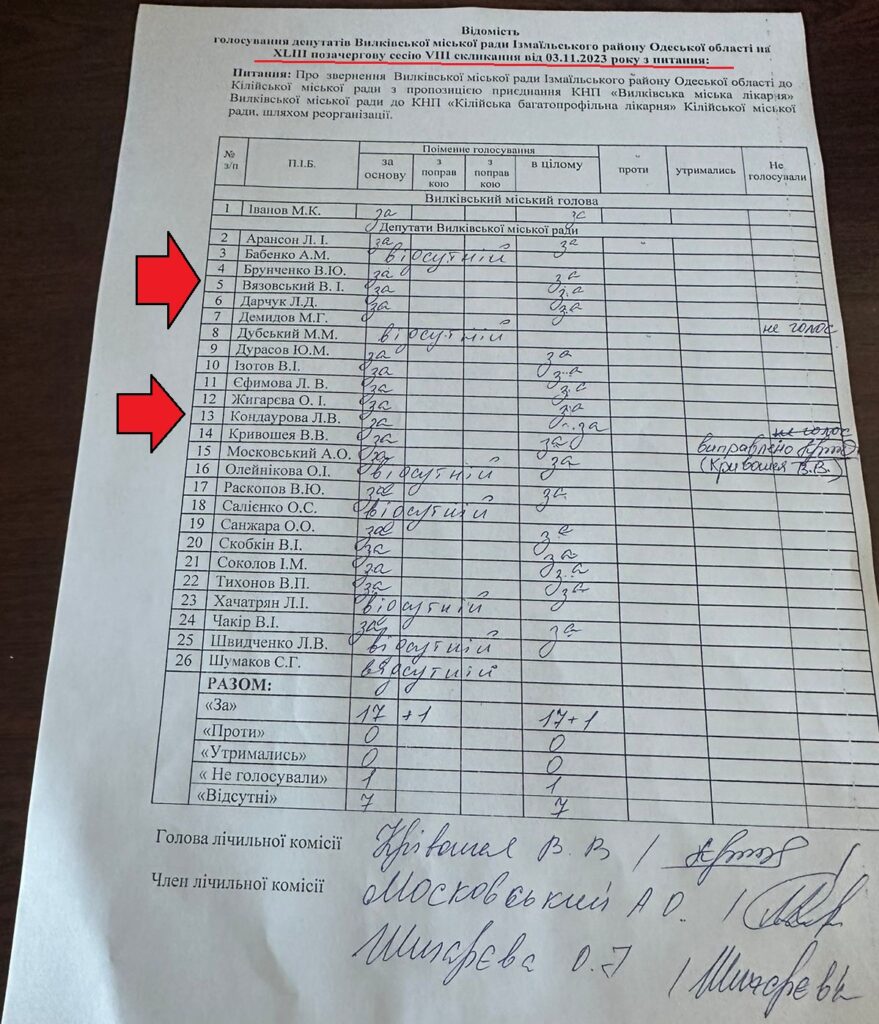 Відомість
голосування депутатів Вилківської міської ради Ізмаїльського району Одеської області на
XLIII позачергову сесію VIII скликання від 03.11.2023 року з питання:
Питання: Про звернення Вилківської міської ради Ізмаїльського району Одеської області до
Кілійської міської ради з пропозицією приєднання КНП «Вилківська міська лікарня»
Вилківської міської ради до КНП «Кілійська багатопрофільна лікарня» Кілійської міської
ради, шляхом реорганізації.
№ з/п П.І.Б. Поіменне голосування проти утримались Не голосували
за основу з поправкою з поправкою в цілому
Вилківський міський голова
1 Іванов М.К. за за
Депутати Вилківської міської ради
2 Арансон Л. І. за за
3 Бабенко А.М. відсутній
4 Брунченко В.Ю. за за
5 Вязовський В. І. за за
6 Дарчук Л.Д. за за
7 Демидов М.Г. не голос
8 Дубський М.М. відсутній
9 Дурасов Ю.М. за за
10 Ізотов В.І. за за
11 Єфимова Л. В. за за
12 Жигарєва О. І. за за
13 Кондаурова Л.В. за за не голос
14 Кривошея В.В. за за виправлено
15 Московський А.О. за за (Кривошея В.В.)
16 Олейнікова О.І. відсутній
17 Раскопов В.Ю. за за
18 Салієнко О.С. відсутній
19 Санжара О.О. за за
20 Скобкін В.І. за за
21 Соколов І.М. за за
22 Тихонов В.П. за за
23 Хачатрян Л.І. відсутній
24 Чакір В.І. за за
25 Швидченко Л.В. відсутній
26 Шумаков С.Г. відсутній
РАЗОМ:
«За» 17 +1 17+1
«Проти» 0 0
«Утримались» 0 0
« Не голосували» 1 1
«Відсутні» 7 7
Голова лічильної комісії Крівошея В. В /
Член лічильної комісії Московський А О. /
Шигарєва О. І / Шигарєва